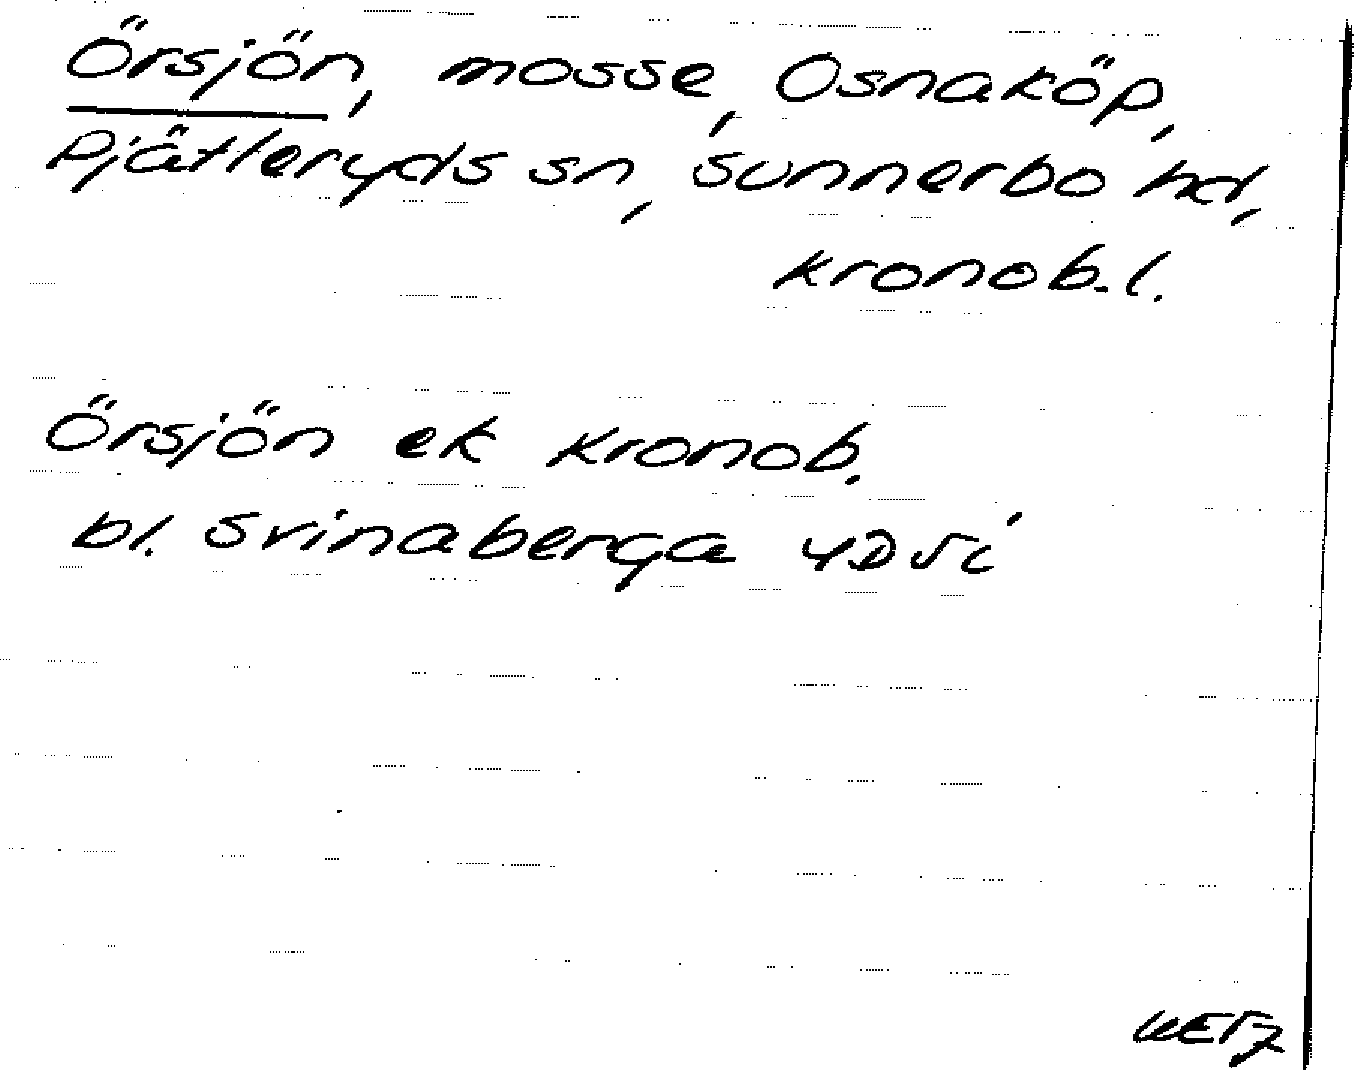 Örsjön, mosse, Osnaköp,
Pjätteryds sn, Sunnerbo hd,
Kronob. l.
Örsjön ek Kronob.
bl. Svinaberga 4D5i